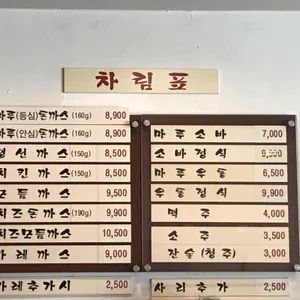 차림표
마루(등심)돈까스(160g) 8,900
마루(안심)돈까스(160g) 8,900
생선까스(150g) 8,500
치킨까스(150g) 8,500
모듬까스 9,500
치즈돈까스(190g) 9,900
치즈모듬까스 10,500
카레까스 9,000
카레추가시 2,500
마루소바 7,000
소바정식 9,900
마루우동 6,500
우동정식 9,900
맥주 4,000
소주 3,500
잔술(청주) 3,000
사리추가 2,500